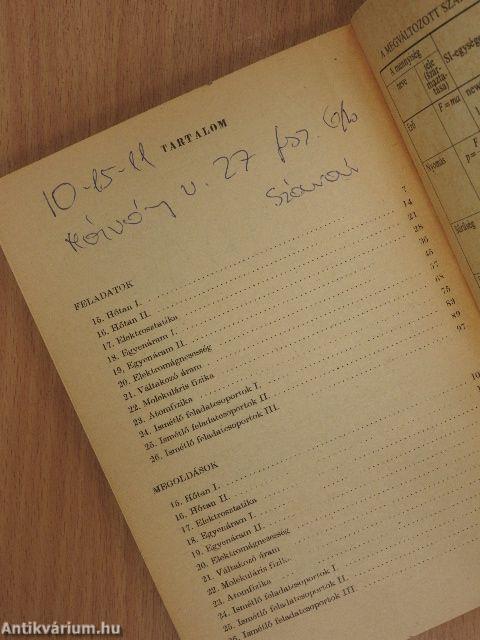 TARTALOM
10-15-11
u. 27 fsz.
FELADATOK
7
15. Hőtan I.
14
16. Hőtan II.
21
17. Elektrosztatika
28
18. Egyenáram I.
36
19. Egyenáram II.
20. Elektromágnesesség
57
21. Váltakozó áram
68
22. Molekuláris fizika
75
23. Atomfizika
24. Ismétlő feladatcsoportok I.
89
25. Ismétlő feladatcsoportok II.
97
26. Ismétlő feladatcsoportok III.
MEGOLDÁSOK
15. Hőtan I.
16. Hőtan II.
17. Elektrosztatika
18. Egyenáram I.
19. Egyenáram II.
20. Elektromágnesesség
21. Váltakozó áram
22. Molekuláris fizika
23. Atomfizika
24. Ismétlő feladatcsoportok I.
25. Ismétlő feladatcsoportok II.
26. Ismétlő feladatcsoportok III.
A MEGVÁLTOZOTT
A mennyiség
neve
jele
Erő
F = ma
Nyomás
Antikvárium.hu